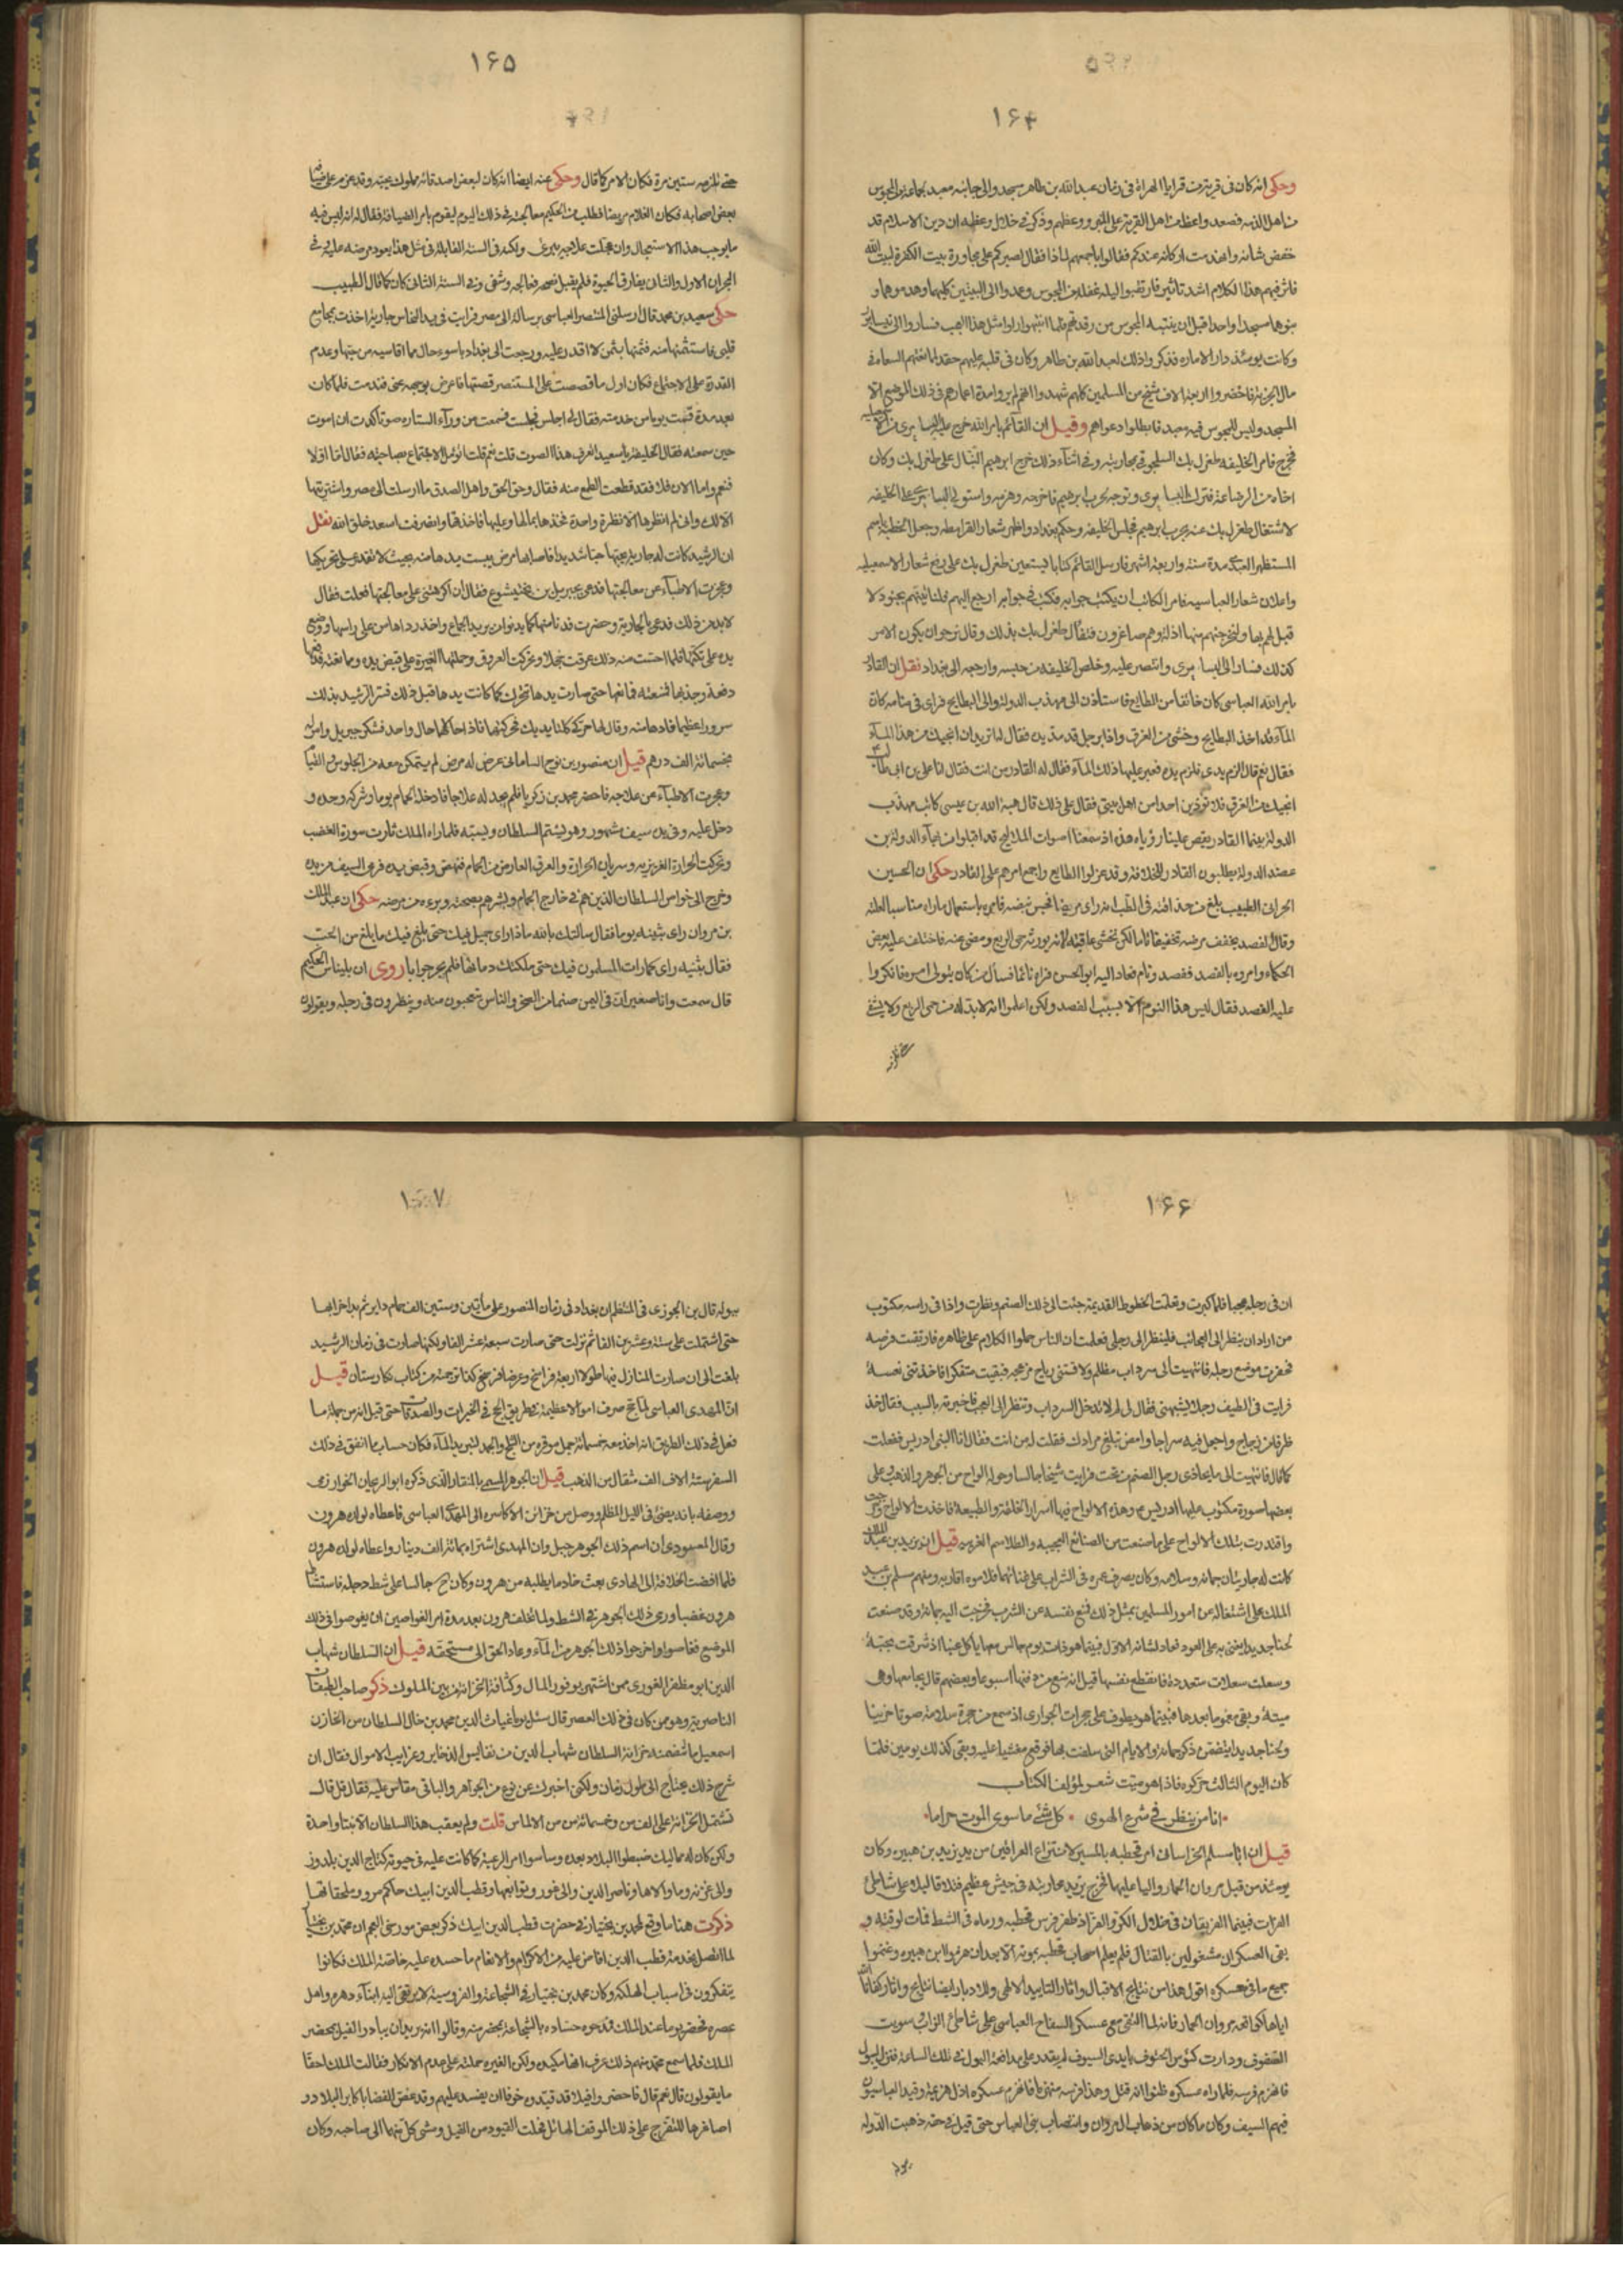 ۱۶۴
وحكى انه كان فى قرية من قرايا الهراة فى زمان عبد الله بن طاهر مسجد والى جانبه معبد بجماعة من المجوس
من اهل الذمه فصعد واعظ من اهل القرية على المنبر ووعظهم وذكر فى خلال وعظه ان دين الاسلام قد
خفض شانه وانهدمت اركانه عندكم فقالوا باجمعهم لماذا فقال لصبركم على مجاورة بيت الكفرة لبيت الله
فاثر فيهم هذا الكلام اشد تاثير فارتقبوا ليله غفله من المجوس وعمدوا الى البيتين كليهما وهدموهما و
بنوهما مسجدا واحدا قبل ان ينتبه المجوس من رقدتهم فلما انتبهوا راوا مثل هذا العجب فساروا الى نيسابور
وكانت يومئذ دار الاماره فذكروا ذلك لعبد الله بن طاهر وكان فى قلبه عليهم حقد
مال الجزية فاحضروا اربعة الاف شيخ من المسلمين كلهم شهدوا انهم لم يروا مدة اعمارهم فى ذلك الموضع الا
المسجد وليس للمجوس فيه معبد فابطلوا دعواهم وقيل ان القائم بامر الله خرج عليه البساسيرى
فخرج فامر الخليفه طغرل بك السلجوقى بمحاربته وفى اثناء ذلك خرج ابرهيم الينال على طغرل بك وكان
اخاه من الرضاعة فترك البساسيرى وتوجه لحرب ابرهيم فاخرجه وهزمه واستولى البساسيرى على الخليفه
لاشتغال طغرل بك عنه بحرب ابرهيم فجلس الخليفه وحكم ببغداد واظهر شعار القرامطه وجعل الخطبة باسم
المستظهر العبيدى مدة سنة واربعة اشهر فارسل القائم كتابا ليستعين طغرل بك على رفع شعار الاسمعيليه
واعلان شعار العباسيه فامر الكاتب ان يكتب جوابه فكتب فى جوابه ارجع اليهم فلنأتينهم بجنود لا
قبل لهم بها ولنخرجنهم منها اذلة وهم صاغرون فتفأل طغرل بك بذلك وقال نرجو ان يكون الامر
كذلك فسار الى البساسيرى وانتصر عليه وخلص الخليفه من حبسه وارجعه الى بغداد نقل ان القادر
بامر الله العباسى كان خائفا من الطايع فاستأذن الى مهذب الدوله والى البطايح فراى فى منامه كان
المآء قد اخذ البطايح وخشى من الغرق واذا برجل قد مد يده فقال له اتريد ان انجيك من هذا المآء
فقال نعم قال الزم يدى فلزم يده فعبر عليها ذلك المآء فقال له القادر من انت فقال انا على بن ابى طالب
انجيك من الغرق فلا توذين احدا من اهل بيتى فقال على ذلك قال هبة الله بن عيسى كاتب مهذب
الدولة بينما القادر يقص علينا رؤياه هذه اذ سمعنا اصوات الملاليح قد اقبلوا من بهاء الدولة بن
عضد الدولة يطلبون القادر للخلافة وقد عزلوا الطايع واجمع امرهم على القادر حكى ان الحسين
الحرانى الطبيب بلغ من حذاقته فى الطب انه راى مريضا فجس نبضه فامره باستعمال ماراه مناسبا لعلته
وقال الفصد يخفف مرضه تخفيفا تاما لكن نخشى عاقبته لانه يورثه حمى الربع ومضى عنه فاختلف عليه بعض
الحكماء وامروه بالفصد ففصد ونام فعاد اليه ابو الحسن فراه نائما فسأل من كان يتولى امره فانكروا
عليه الفصد فقال ليس هذا النوم الا بسبب الفصد ولكن اعلموا انه لا بد له من حمى الربع ولا يشفى
حتى تلزمه
۱۶۵
حتى تلزمه ستين مرة فكان الامر كما قال وحكى عنه ايضا انه كان لبعض اصدقائه مملوك يحبه وقد عزم على ضيافة
بعض اصحابه فكان الغلام مريضا فطلب من الحكيم معالجته فى ذلك اليوم ليقوم بامر الضيافة فقال له انه ليس فيه
ما يوجب هذا الاستعجال وان عجلت علاجه يبرئ ولكنه فى السنة القابلة فى مثل هذا يعود مرضه عليه فى
البحران الاول والثانى يفارق الحيوة فلم يقبل نصحه فعالجه وشفى وفى السنة الثانى كان كما قال الطبيب
حكى سعيد بن محمد قال ارسلنى المنتصر العباسى برسالة الى مصر فرايت فى يد النخاس جارية اخذت بمجامع
قلبى فاستثمنها منه فثمنها بثمن لا اقدر عليه ورجعت الى بغداد باسوء حال مما اقاسيه من حبها وعدم
القدرة على الاجتماع فكان اول ما قصصت على المستنصر قصتها فاعرض بوجهه عنى فندمت فلما كان
بعد مدة قمت يوما من خدمته فقال لى اجلس فجلست فسمعت من ورآء الستاره صوتا كدت ان اموت
حين سمعته فقال الخليفة يا سعيد اتعرف هذا الصوت قلت نعم قلت اتؤمل الاجتماع بصاحبته فقال اما اولا
فنعم واما الان فلا فقد قطعت الطمع منه فقال وحق الحق واهل الصدق ما ارسلت الى مصر واشتريتها
الا لك وانى لم انظرها الا نظرة واحدة فخذها بمالها وعليها فاخذتها وانصرفت اسعد خلق الله نقل
ان الرشيد كانت له جارية يحبها حبا شديدا فاصابها مرض يبست يدها منه بحيث لا تقدر على تحريكها
وعجزت الاطبآء عن معالجتها فدعى بجبريل بن بختيشوع فقال ان اكرهتنى على معالجتها فعلت فقال
لا بد من ذلك فدعى بالجارية وحضرت فدنا منها كما يدنو من يريد الجماع واخذ رداها من على راسها ووضع
يده على تكتها فلما احست منه ذلك عرقت خجلا وتحركت العروق وحملتها الغيرة على قبض يده وممانعته
دفعة وجذبها فمنعته فمانعها حتى صارت يدها تتحرك كما كانت يدها قبل ذلك فسر الرشيد بذلك
سرورا عظيما وقال لها حركى كلتا يديك فحركتهما فاذا حالهما حال واحد فشكر جبريل وامر له
بخمسمائة الف درهم قيل ان منصور بن نوح السامانى عرض له مرض لم يتمكن معه من الجلوس والقيام
وعجزت الاطبآء عن علاجه فاحضر محمد بن زكريا فلم يجد له علاجا فادخله الحمام يوما وتركه وحده و
دخل عليه وفى يده سيف مشهور وهو يشتم السلطان ويسبه فلما راه الملك ثارت سورة الغضب
وتحركت الحرارة الغريزيه وسريان الحرارة والعرق العارض من الحمام فنهض وقبض يده فرمى السيف من يده
وخرج الى خواص السلطان الذين هم فى خارج الحمام وبشرهم بصحته وبرءه من مرضه حكى ان عبد الملك
بن مروان راى بثينه يوما فقال سالتك بالله ماذا راى جميل فيك حتى بلغ فيك ما بلغ من الحب
فقال بثنيه راى كما رات المسلمون فيك حتى ملكتك دمائها فلم يحر جوابا روى ان بليناس الحكيم
قال سمعت وانا صغير ان فى اليمن صنما من الصخر والناس تعجبون منه وينظرون فى رجله ويقولون
۱۶۶
ان فى رجله عجبا فلما كبرت وتعلمت الخطوط القديمة جئت الى ذلك الصنم ونظرت واذا فى راسه مكتوب
من اراد ان ينظر الى العجائب فلينظر الى رجلى فعلمت ان الناس حملوا الكلام على ظاهره فارتقبت فرصه
فحفرت موضع رجله فانتهيت الى سرداب مظلم ولاقتنى رياح مزعجه فبقيت متفكرا فاخذتنى نعسة
فرايت فى الطيف رجلا يشبهنى فقال لى لم لا تدخل السرداب وتنظر الى العجب فاخبرته بالسبب فقال خذ
ظرفا من زجاج واجعل فيه سراجا وامض تبلغ مرادك فقلت له من انت فقال انا النبى ادريس ففعلت
كما قال فانتهيت الى ما يحاذى رجل الصنم من تحت فرايت شيخا جالسا وحوله الواح من الجوهر والذهب وعلى
بعضها صورة مكتوب عليها ادريس وهذه الالواح فيها اسرار الخلقة والطبيعة فاخذت الالواح وخرجت
واقتدرت بتلك الالواح على ما صنعت من الصنائع العجيبه والطلاسم الغريبه قيل ان يزيد بن عبد الملك
كانت له جاريتان حبابه وسلامه وكان يصرف عمره فى الشراب على غنائهما فلاموه اقاربه ومنهم مسلم بن عبد
الملك على اشتغاله عن امور المسلمين بمثل ذلك فمنع نفسه عن الشرب فخرجت اليه حبابة وقد صنعت
لحنا جديدا يغنى به على العود فعاد لشانه الاول فبينما هو ذات يوم جالس معها ياكل عنبا اذ شرقت بحبة
وسعلت سعلات متعددة فانقطع نفسها قيل انه منع من دفنها اسبوعا وبعضهم قال يجامعها وهى
ميتة وبقى مغموما بعدها فبينما هو يطوف على حجرات الجوارى اذ سمع من حجرة سلامة صوتا حزينا
ولحنا جديدا يتضمن ذكر حبابه والايام التى سلفت بها فوقع مغشيا عليه وبقى كذلك يومين فلما
كان اليوم الثالث حركوه فاذا هو ميت شعر لمؤلف الكتاب
انا من ينظر فى شرع الهوى كل شئ ما سوى الموت حراما
قيل ان ابا مسلم الخراسانى امر قحطبه بالمسير لانتزاع العراقين من يد يزيد بن هبيره وكان
يومئذ من قبل مروان الحمار واليا عليها فخرج يزيد بمحاربته فى جيش عظيم فتلاقا ليلا على شاطئ
الفرات فبينما الفريقان فى خلال الكر والفر اذ ظفر فرس قحطبه ورماه فى الشط فمات لوقته و
بقى العسكران مشغولين بالقتال فلم يعلم اصحاب قحطبه بموته الا بعد ان هزموا ابن هبيره وغنموا
جميع ما فى عسكره اقول هذا من نتايج الاقبال واثار التاييد الالهى وللادبار ايضا نتايج واثار كفانا الله
اياها كواقعة مروان الحمار فانه لما التقى مع عسكر السفاح العباسى على شاطئ الزاب سويت
الصفوف ودارت كؤس الحتوف بايدى السيوف لم يقدر على مدافعة البول فى تلك الساعة فنزل ليبول
فانهزم فرسه فلما راه عسكره ظنوا انه قتل وهذا فرسه منهزما فانهزم عسكره اذل هزيمة وقيد العباسيون
فيهم السيف وكان ما كان من ذهاب ال مروان وانتصاب بنى العباس حتى قيل فى حقه ذهبت الدوله
ببوله
۱۶۷
ببوله قال بن الجوزى فى المنتظم ان بغداد فى زمان المنصور على مأتين وستين الف حمام داير ثم بدا خرابها
حتى اشتملت على ستة وعشرين الفا ثم نزلت حتى صارت سبعة عشر الفا ولكنها صارت فى زمان الرشيد
بلغت الى ان صارت المنازل فيها طولا اربعة فراسخ وعرضا فرسخ كذا ترجمته من كتاب نكارستان قيل
ان المهدى العباسى لما حج صرف اموالا عظيمة فى طريق الحج فى الخيرات والصدقات حتى قيل انه من جملة ما
فعل فى ذلك الطريق انه اخذ معه خمسمائة جمل موقره من الثلج والجمد لتبريد المآء فكان حساب ما انفق فى ذلك
السفر ستة الاف الف مثقال من الذهب قيل ان الجوهر المسمى بالمنقار الذى ذكره ابو الريحان الخوارزمى
ووصفه بانه يضئ فى الليل المظلم ووصل من خزائن الاكاسره الى المهدى العباسى فاعطاه لولده هرون
وقال المسعودى ان اسم ذلك الجوهر جبل وان المهدى اشتراه بمائة الف دينار واعطاه لولده هرون
فلما افضت الخلافة الى الهادى بعث خادما يطلبه من هرون وكان ح جالسا على شط دجله فاستشاط
هرون غضبا ورمى ذلك الجوهر فى الشط ولما تخلف هرون بعد مدة امر الغواصين ان يغوصوا فى ذلك
الموضع فغاصوا واخرجوا ذلك الجوهر من المآء وعاد الحق الى مستحقه قيل ان السلطان شهاب
الدين ابو مظفر الغورى ممن اشتهر بوفور المال وكثافة الخزانة من بين الملوك ذكر صاحب الطبقات
الناصرية وهو من كان فى ذلك العصر قال سئل يوما غياث الدين محمد بن خال السلطان من الخازن
اسمعيل ما تضمنه خزانة السلطان شهاب الدين من نفايس الذخاير وغرايب الاموال فقال ان
شرح ذلك يحتاج الى طول زمان ولكنى اخبرك عن نوع من الجواهر والباقى مقاس عليه فقال قل قال
تشتمل الخزانة على الف من وخمسمائة من من الالماس قلت ولم يعقب هذا السلطان الا بنتا واحدة
ولكن كان له مماليك ضبطوا البلاد بعده وساسوا امر الرعية كما كانت عليه فى حيوته كتاج الدين يلدوز
والى غزنه وما والاها وناصر الدين والى غور وتوابعها وقطب الدين ايبك حاكم مرو وملحقاتها
ذكرت هنا ما وقع لمحمد بن بختيار فى حضرت قطب الدين ايبك ذكر بعض مورخى العجم ان محمد بن بختيار
لما اتصل بخدمة قطب الدين افاض عليه من الاكرام والانعام ما حسده عليه خاصة الملك فكانوا
يتفكرون فى اسباب الهلكة وكان محمد بن بختيار فى الشجاعة والفروسية لا يرتقى اليه ابنآء دهره واهل
عصره فحضر يوما عند الملك فمدحوه حساده بالشجاعة بحضرته وقالوا انه يريد ان يبادر الفيل بمحضر
الملك فلما سمع محمد منهم ذلك عرف انها مكيده ولكن الغيره حملته على عدم الانكار فقالت الملك احقا
ما يقولون قال نعم قال فاحضر وافيلا قد قيدوه خوفا ان يفسد عليهم وقد غص الفضا باكابر البلاد و
اصاغرها للتفرج على ذلك الموقف الهائل فحلت القيود من الفيل ومشى كل منهما الى صاحبه وكان